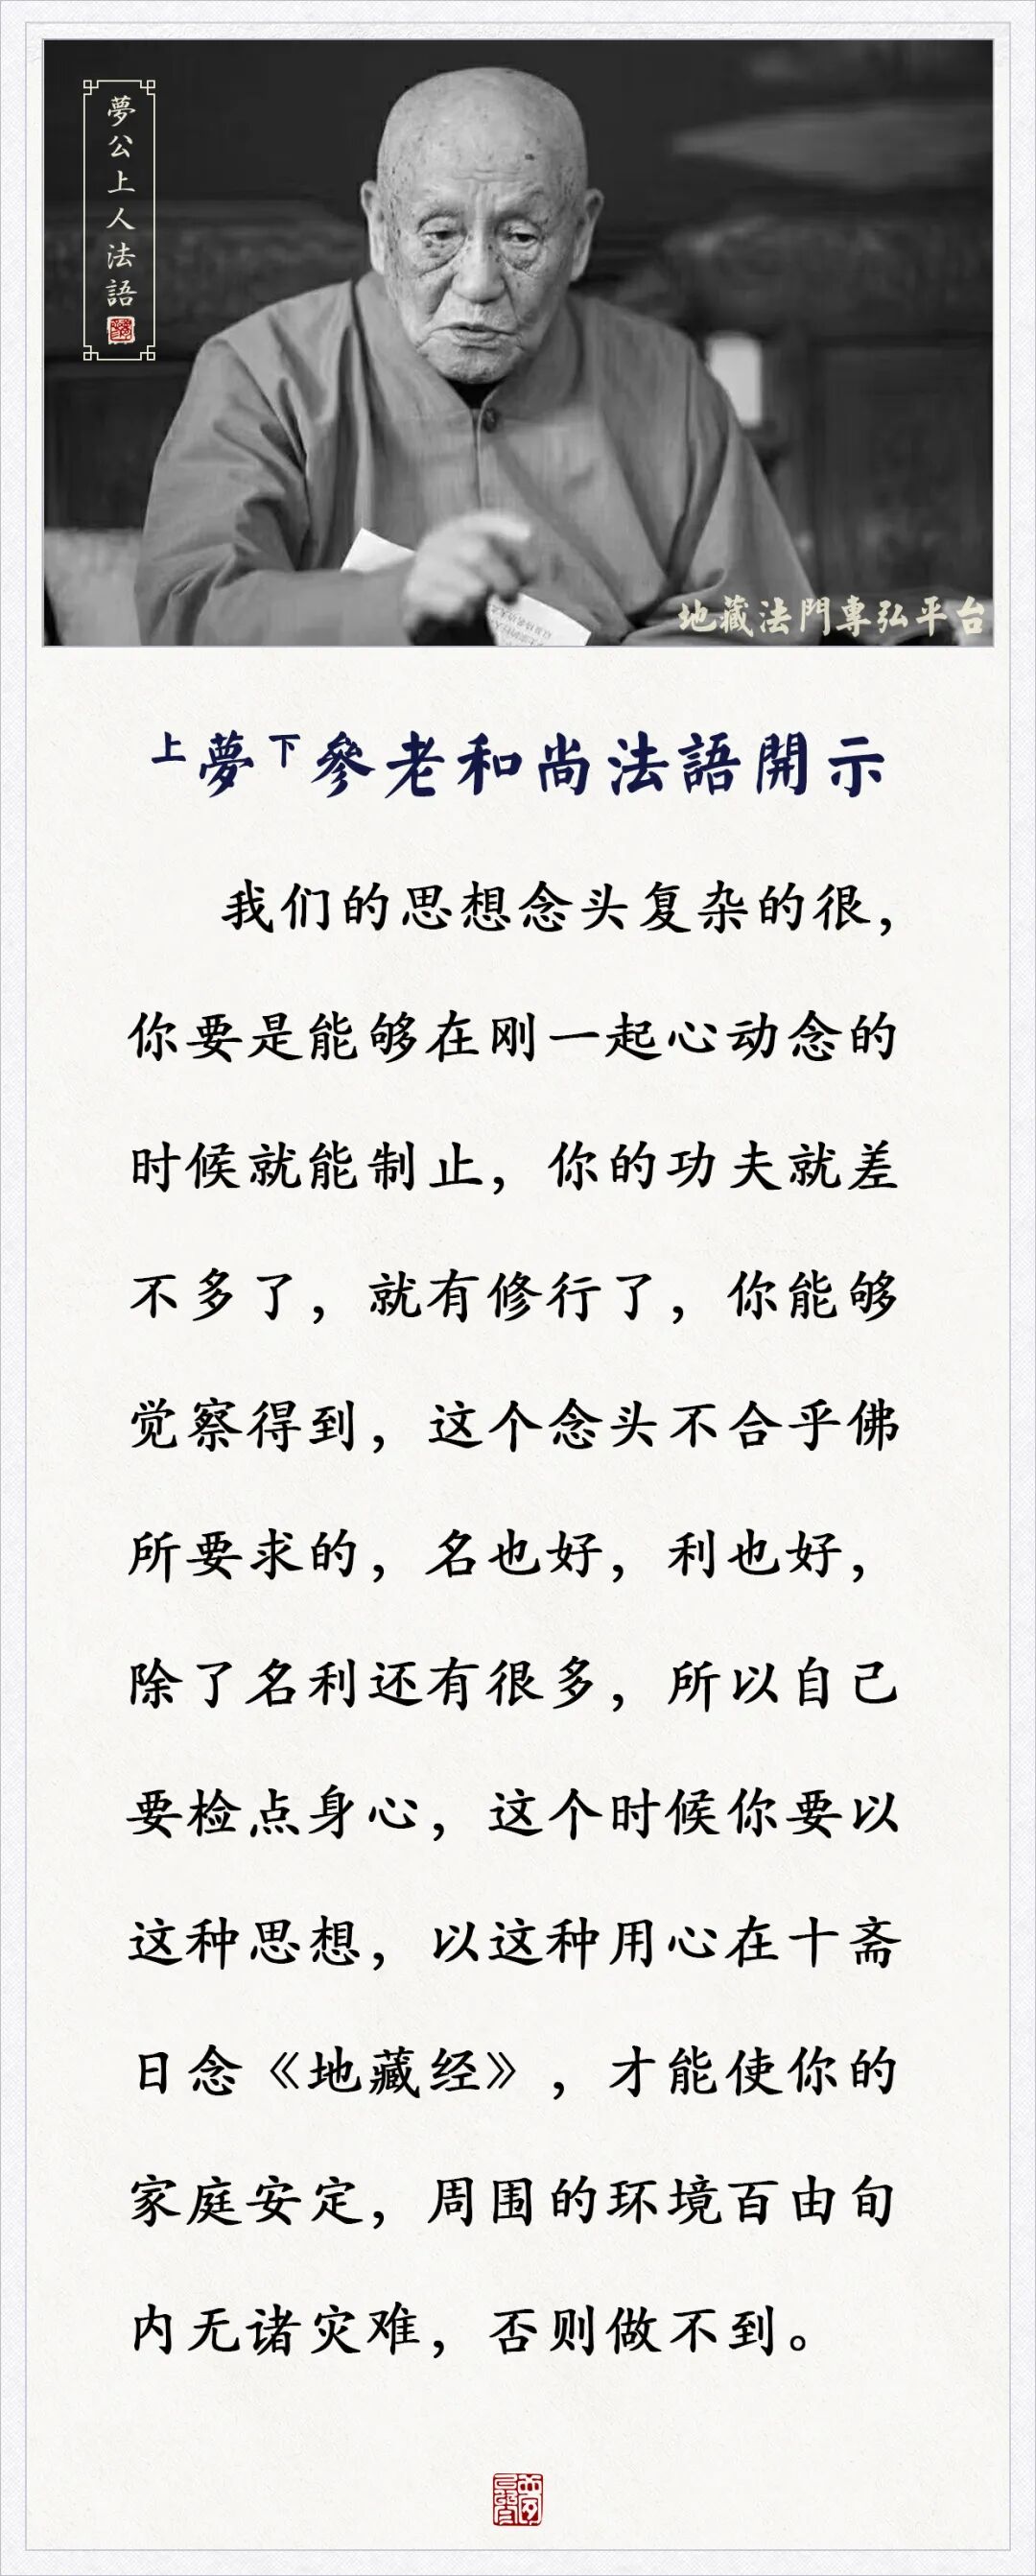 夢公上人法語
地藏法門專弘平台
上夢下參老和尚法語開示
我们的思想念头复杂的很，
你要是能够在刚一起心动念的
时候就能制止，你的功夫就差
不多了，就有修行了，你能够
觉察得到，这个念头不合乎佛
所要求的，名也好，利也好，
除了名利还有很多，所以自己
要检点身心，这个时候你要以
这种思想，以这种用心在十斋
日念《地藏经》，才能使你的
家庭安定，周围的环境百由旬
内无诸灾难，否则做不到。